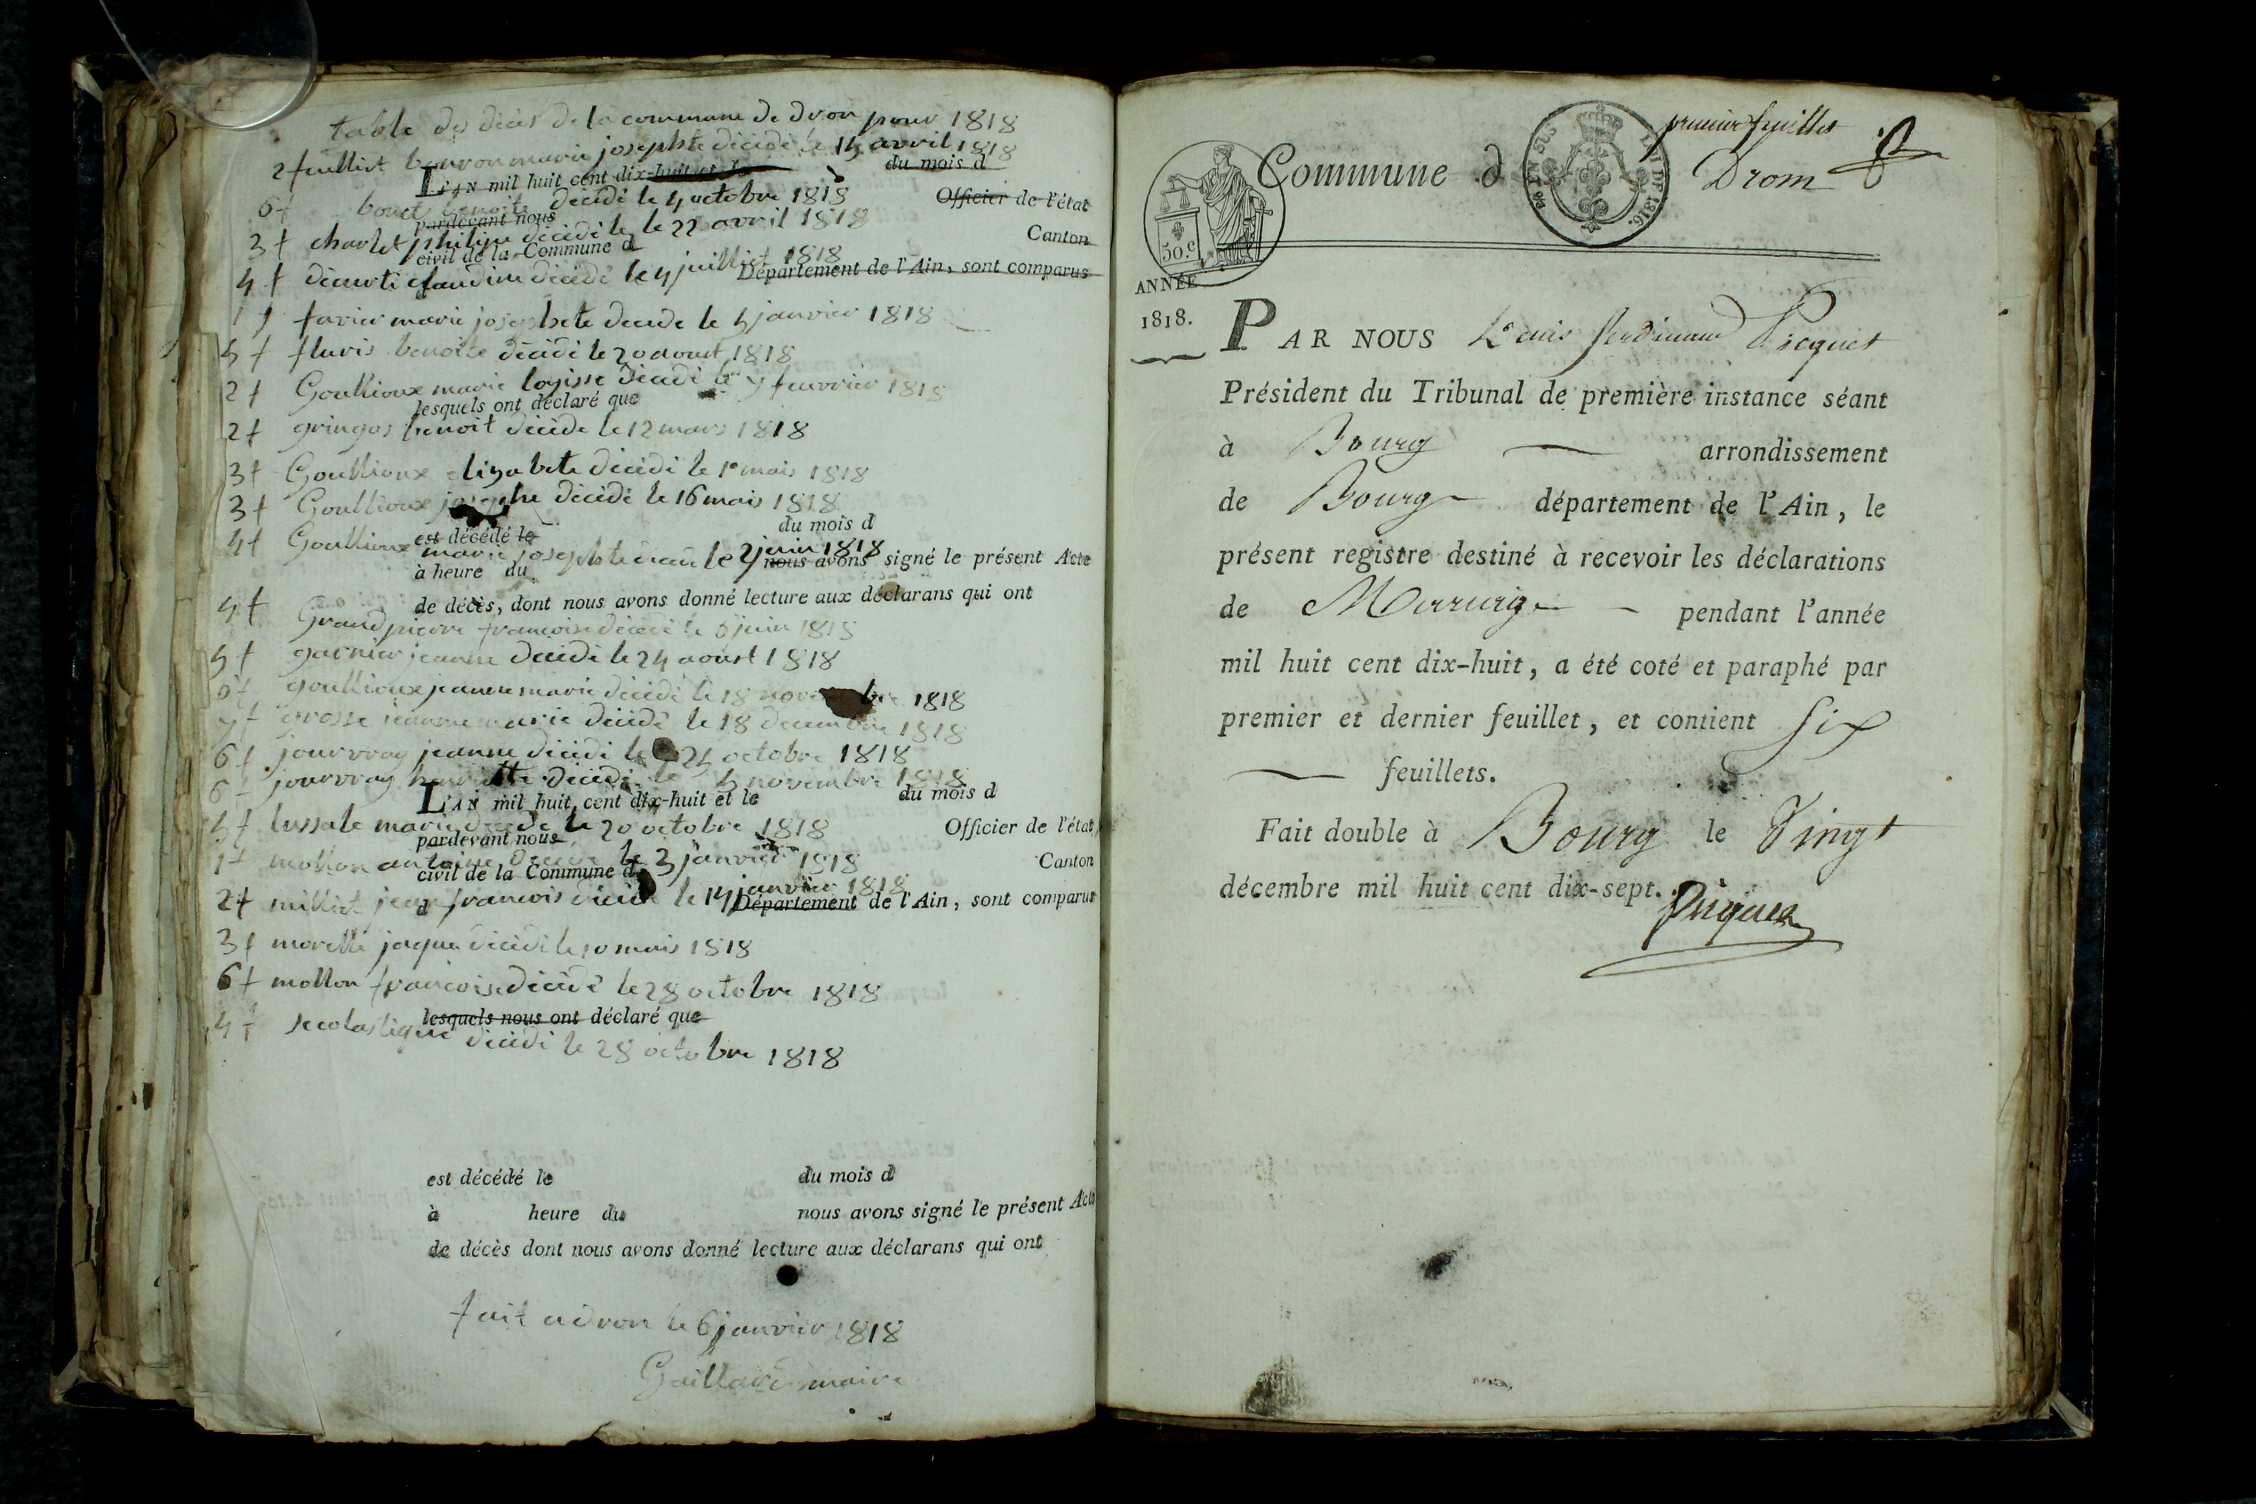 table des décès de la commune de dron pour 1818
2 feuillet bonron marie josephte décédé le 15 avril 1818
L'AN mil huit cent dix-huit et le du mois d
6 f bouet benoite décédé le 4 octobre 1818
pardevant nous Officier de l'état
3 f charlet philipe décédé le 22 avril 1818
civil de la Commune d Canton
4 f claudine décédé le 4 juilliet 1818
Département de l'Ain, sont comparus
1 f favier marie josephete decede le 5 janvier 1818
5 f fluris benoite décédé le 20 aoust 1818
2 f Goullioux marie loyisse décédé le 7 fevrier 1818
lesquels ont déclaré que
2 f gringos benoit décédé le 12 mars 1818
3 f Goullioux elizabete décédé le 1e mais 1818
3 f Goullioux josephe décédé le 16 mais 1818
est décédé le du mois d
4 f Goullioux marie josephte le 2 juin 1818
à heure du nous avons signé le présent Acte
de décès, dont nous avons donné lecture aux déclarans qui ont
4 f Grandpierre francoise décédé le 6 juin 1818
5 f garnier jeanne décédé le 24 aoust 1818
6 f goullioux jeanne marie décédé le 18 novembre 1818
7 f grosse jeanne marie décédé le 18 decembre 1818
6 f jourvray jeanne décédé le 24 octobre 1818
6 f jourvray décédé le 5 novembre 1818
L'AN mil huit cent dix-huit et le du mois d
5 f lussale marie décédé le 20 octobre 1818
pardevant nous Officier de l'état
1 f mollon antoine décédé le 3 janvier 1818
civil de la Commune d Canton
2 f milliet jean francois décédé le 14 janvier 1818
d Département de l'Ain, sont comparus
3 f morelle jaque décédé le 10 mais 1818
6 f mollon francoise décédé le 28 octobre 1818
lesquels nous ont déclaré que
4 f secolastique décédé le 28 octobre 1818
est décédé le du mois d
à heure du nous avons signé le présent Acte
de décès dont nous avons donné lecture aux déclarans qui ont
fait a dron le 6 janvier 1818
Gaillard maire
premier feuillet
Commune d Drom
EN SUS LOI DE 1816.
50.c
ANNÉE
1818.
PAR NOUS Louis ferdinand Picquet
Président du Tribunal de première instance séant
à Bourg arrondissement
de Bourg département de l'Ain, le
présent registre destiné à recevoir les déclarations
de Mariage pendant l'année
mil huit cent dix-huit, a été coté et paraphé par
premier et dernier feuillet, et contient Six
feuillets.
Fait double à Bourg le Vingt
décembre mil huit cent dix-sept.
Picquet